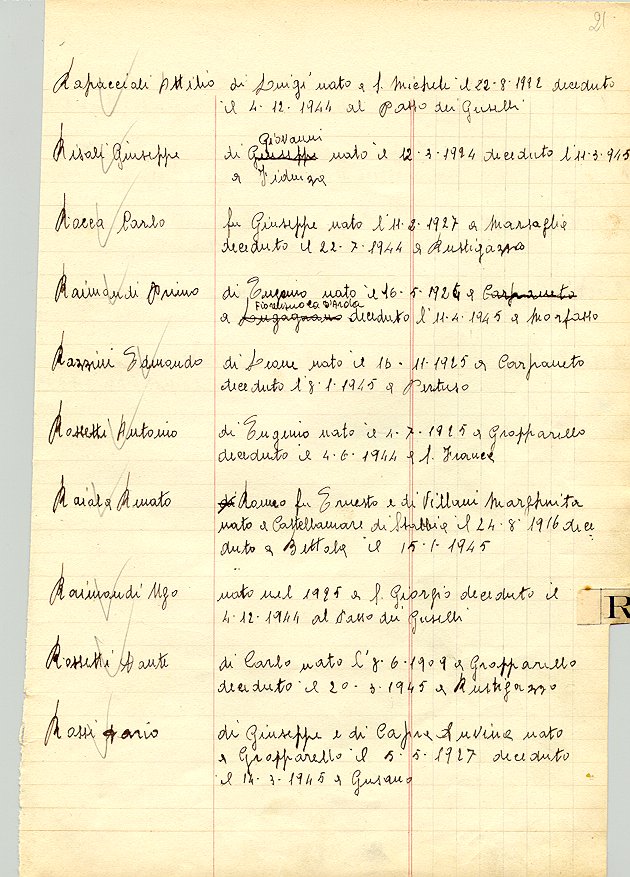 21
Rapaccioli Attilio di Luigi nato a S. Michele il 22-8-1922 deceduto
il 4-12-1944 al Passo dei Guselli
Giovanni
Risoli Giuseppe di Giuseppe nato il 12-3-1924 deceduto l'11-3-945
a Fidenza
Rocca Carlo fu Giuseppe nato l'11-2-1927 a Marsaglia
deceduto il 22-7-1944 a Rustigazzo
Raimondi Primo di Eugenio nato il 16-5-1926 a Carpaneto
Fiorenzuola d'Arda
a Lugagnano deceduto l'11-4-1945 a Morfasso
Razzini Edmondo di Leone nato il 16-11-1925 a Carpaneto
deceduto l'8-1-1945 a Pertuso
Rossetti Antonio di Eugenio nato il 4-7-1925 a Gropparello
deceduto il 4-6-1944 a S. Franca
Raiola Renato di Romeo fu Ernesto e di Villani Margherita
nato a Castellamare di Stabbia il 24-8-1916 dece
duto a Bettola il 15-1-1945
Raimondi Ugo nato nel 1925 a S. Giorgio deceduto il
4-12-1944 al Passo dei Guselli
R
Rossetti Dante di Carlo nato l'8-6-1909 a Gropparello
deceduto il 20-3-1945 a Rustigazzo
Rossi Dario di Giuseppe e di Capra nato
a Gropparello il 5-5-1927 deceduto
il 14-3-1945 a Gusano